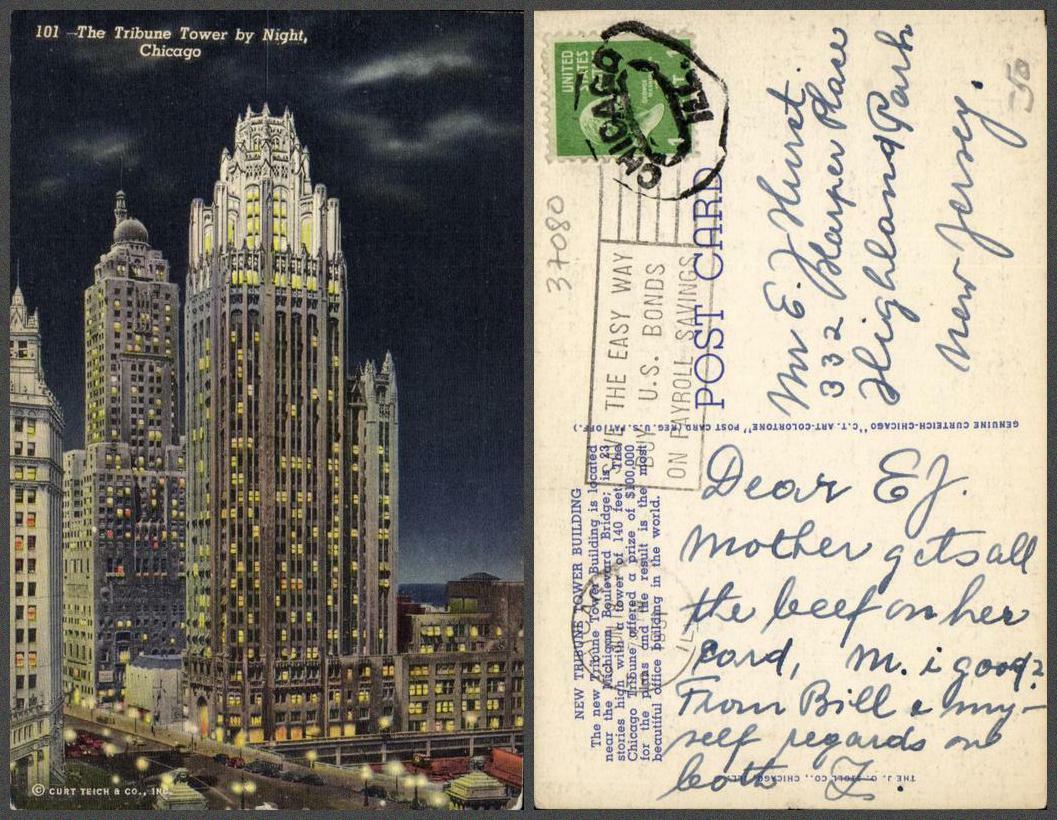 101 -The Tribune Tower by Night,
Chicago
© CURT TEICH & CO., INC.
UNITED
STATES
CHICAGO
ILL.
37080
THE EASY WAY
BUY U.S. BONDS
ON PAYROLL SAVINGS
POST CARD
Mr E. J Hurst.
332 Harper Place
Highland Park
New Jersey.
50
GENUINE CURTEICH-CHICAGO "C.T. ART-COLORTONE" POST CARD (REG. U.S. PAT. OFF.)
NEW TRIBUNE TOWER BUILDING
The new Tribune Tower Building is located
near the Michigan Boulevard Bridge; is 23
stories high with a tower of 140 feet. The
Chicago Tribune offered a prize of $100,000
for the plans and the result is the most
beautiful office building in the world.
Dear EJ.
Mother gets all
the beef on her
card, M. i good?
From Bill & my-
self regards on
both
THE J. O. STOLL CO., CHICAGO, ILL.